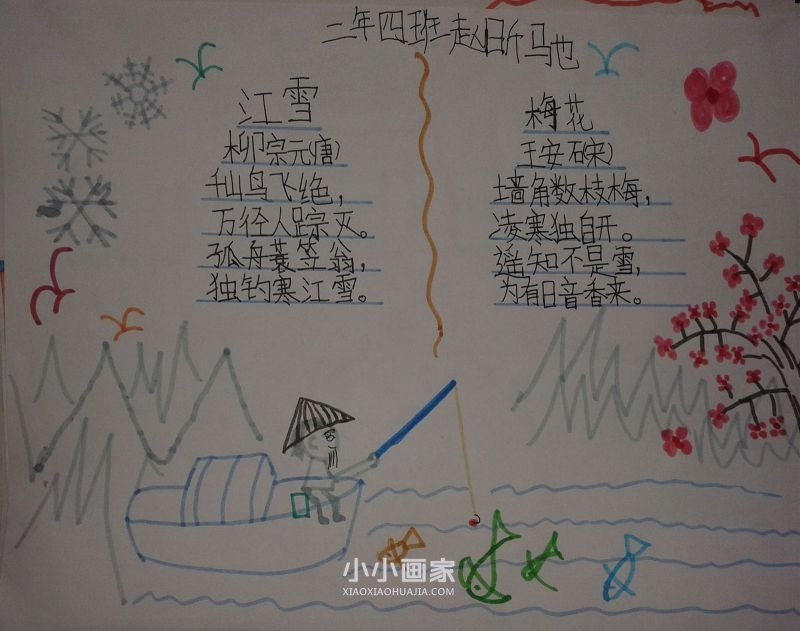 三年四班赵昕驰
江雪
柳宗元(唐)
千山鸟飞绝，
万径人踪灭。
孤舟蓑笠翁，
独钓寒江雪。
梅花
王安石(宋)
墙角数枝梅，
凌寒独自开。
遥知不是雪，
为有暗香来。
小小画家
XIAOXIAOHUAJIA.COM